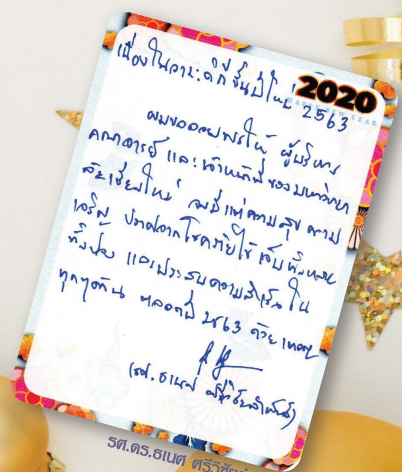 2020
HAPPY NEW YEAR
เนื่องในวาระดิถีขึ้นปีใหม่ 2563
ผมขออวยพรให้ ผู้บริหาร
คณาจารย์ และเจ้าหน้าที่ของมหาวิทยา
ลัยเชียงใหม่ จงมีแต่ความสุข ความ
เจริญ ปราศจากโรคภัยไข้เจ็บทั้งหลาย
ทั้งปวง และประสบความสำเร็จ ใน
ทุกๆด้าน ตลอดปี 2563 ด้วย เทอญ
(รศ. ธเนศ ศรีวิชัยลำพันธ์)
รศ.ดร.ธเนศ